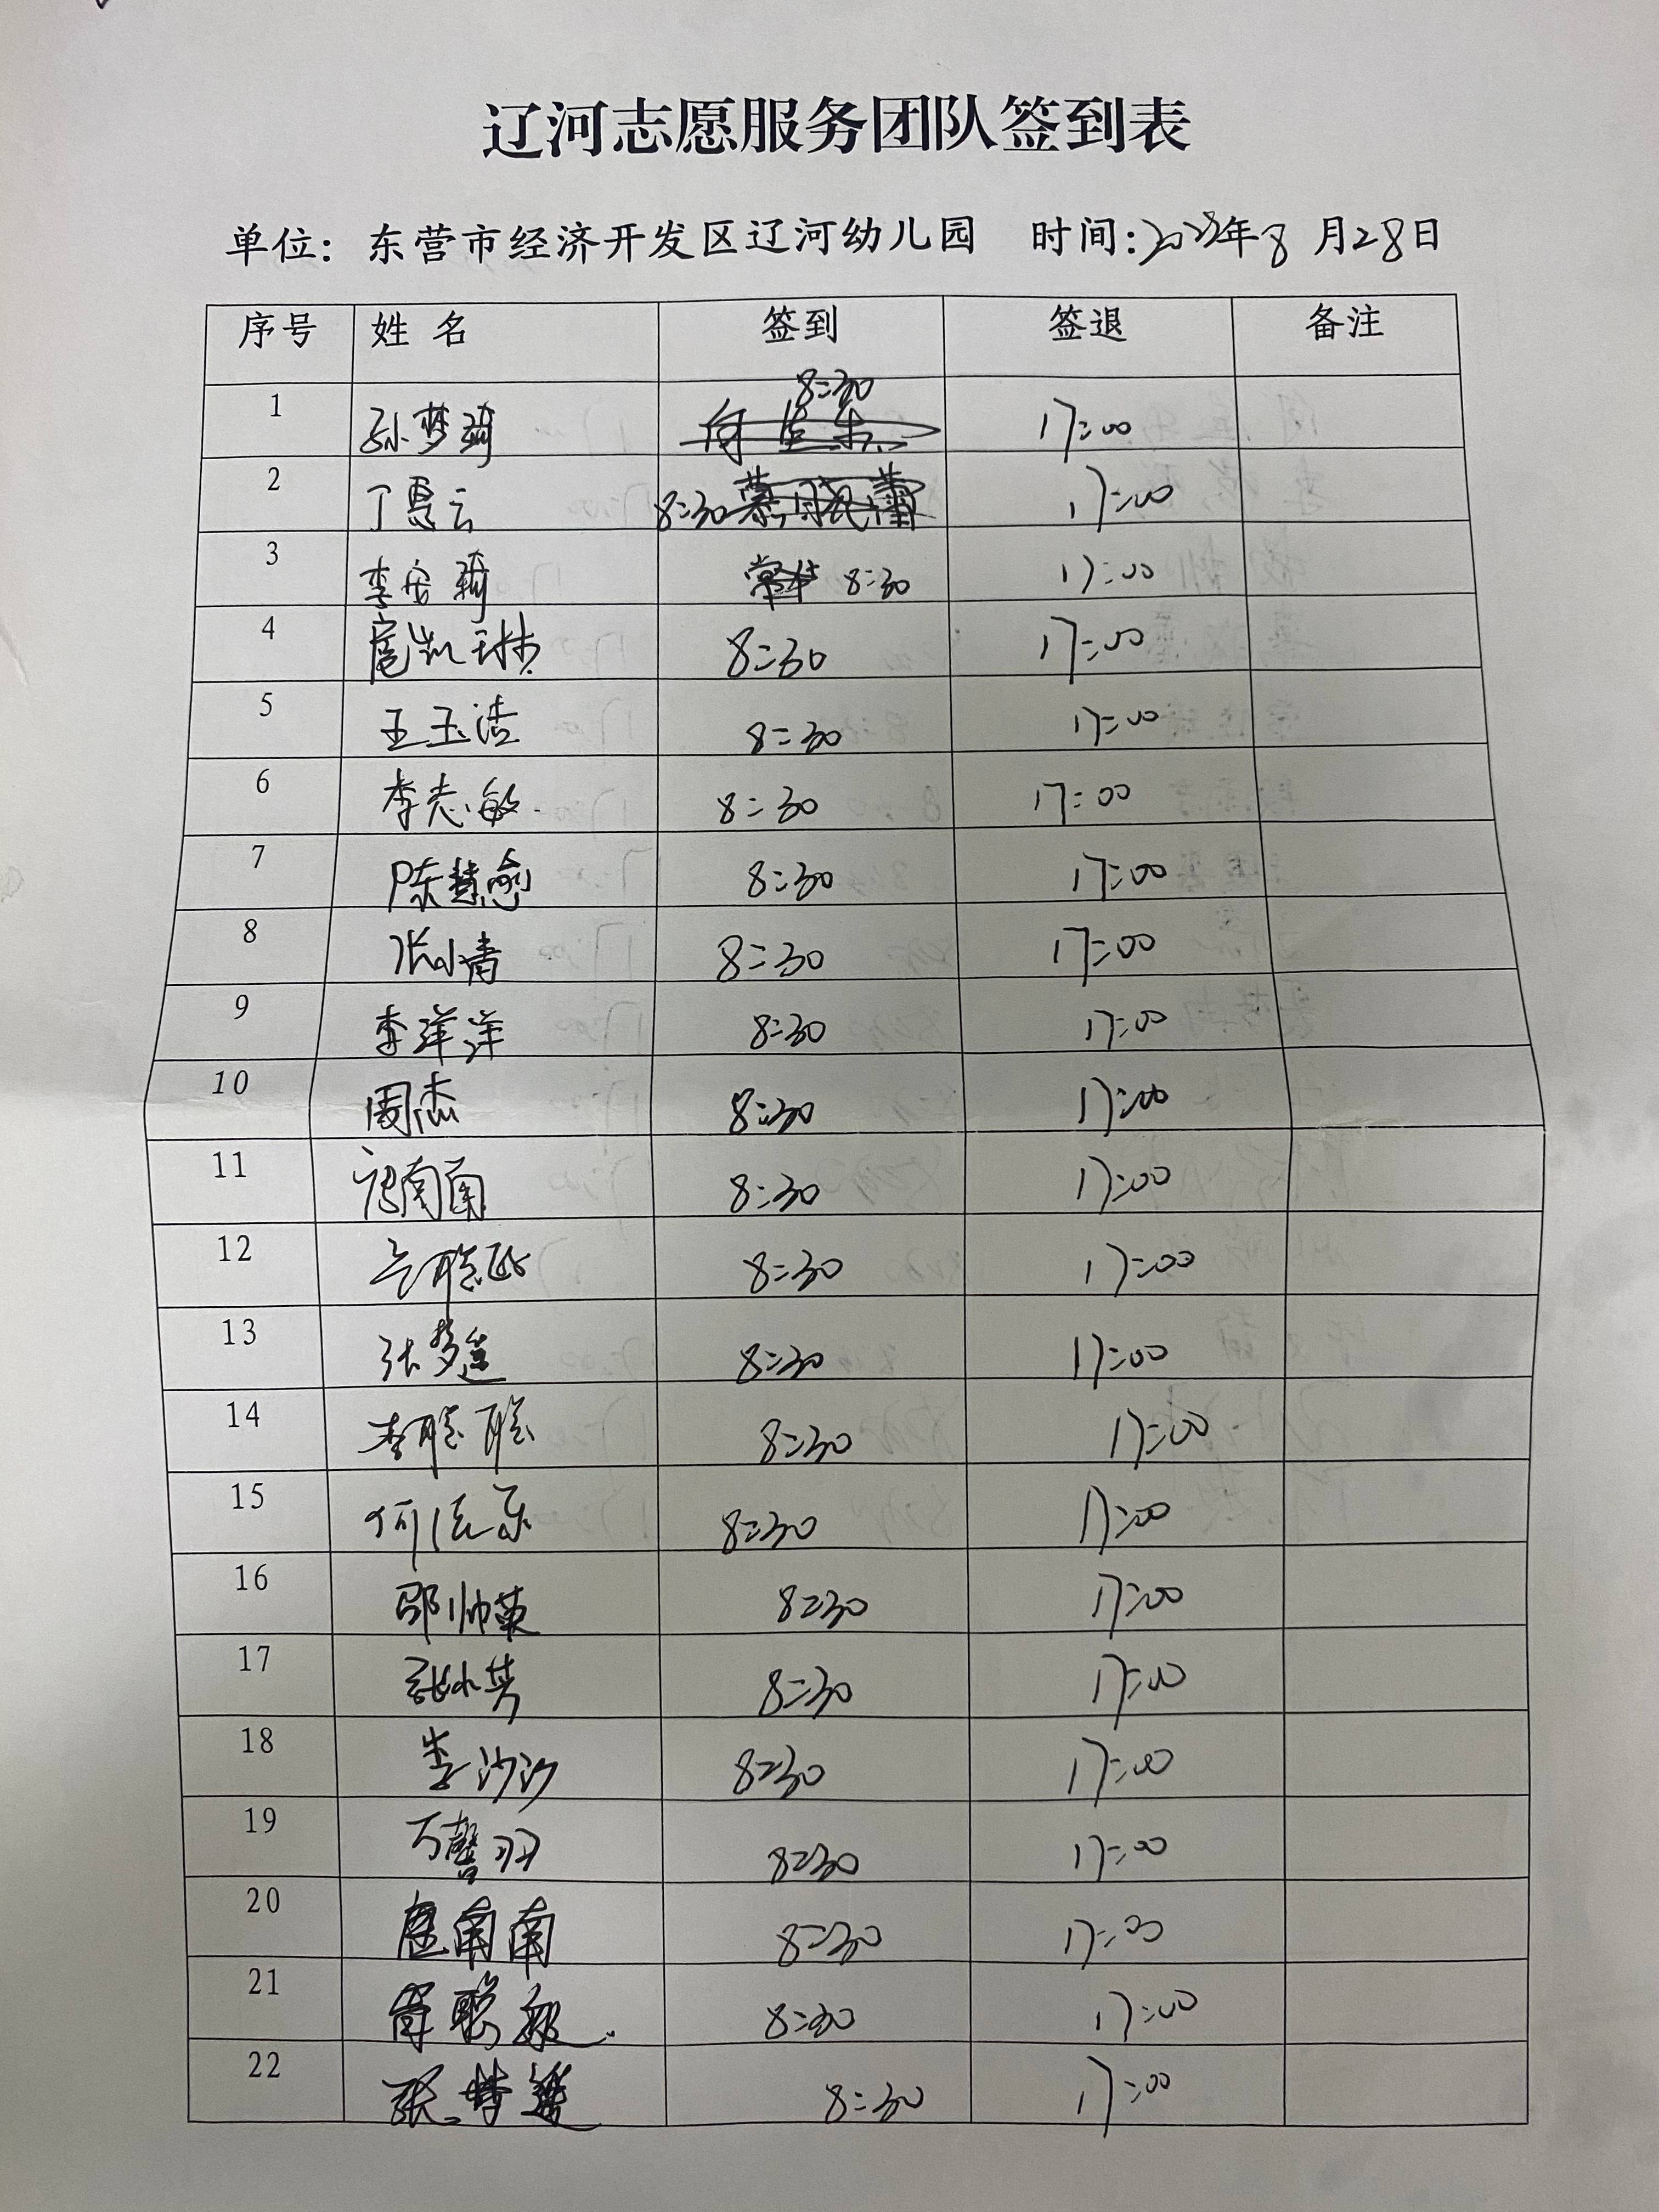 辽河志愿服务团队签到表
单位：东营市经济开发区辽河幼儿园 时间:2023年8月28日
序号 姓名 签到 签退 备注
8:30
1 孙梦琦 17:00
2 丁惠云 8:30 17:00
3 李安琦 8:30 17:00
4 扈凯琳 8:30 17:00
5 王玉洁 8:30 17:00
6 李志敏 8:30 17:00
7 陈慧愈 8:30 17:00
8 张小青 8:30 17:00
9 李洋洋 8:30 17:00
10 周杰 8:30 17:00
11 南南 8:30 17:00
12 8:30 17:00
13 张梦莲 8:30 17:00
14 李聪聪 8:30 17:00
15 何佳乐 8:30 17:00
16 邵帅英 8:30 17:00
17 张小芳 8:30 17:00
18 李沙沙 8:30 17:00
19 万馨羽 8:30 17:00
20 南南 8:30 17:00
21 8:30 17:00
22 张梦莲 8:30 17:00